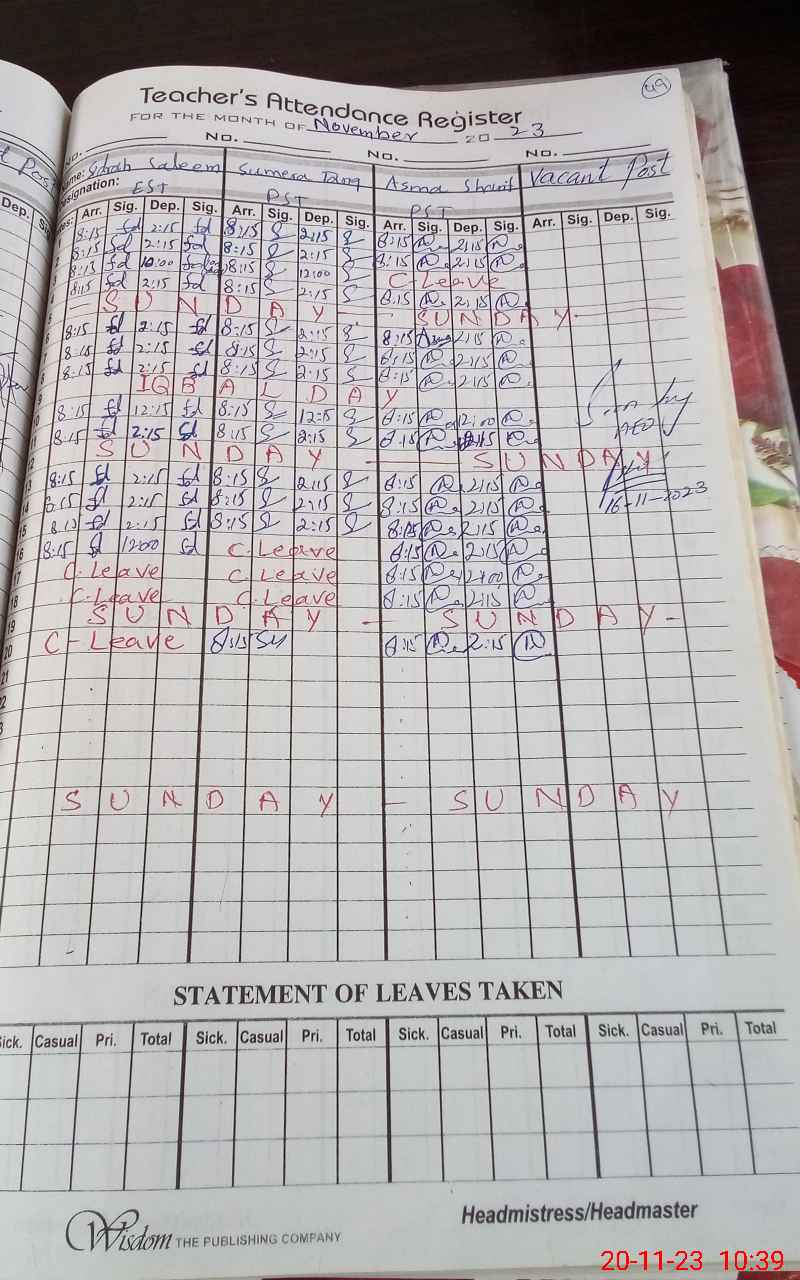 49
Teacher's Attendance Register
FOR THE MONTH OF November 2023
No. No. No. No.
Name: Sidrah Saleem Sumera Tariq Asma Sharif Vacant Post
Designation: EST PST PST
Dep. Arr. Sig. Dep. Sig. Arr. Sig. Dep. Sig. Arr. Sig. Dep. Sig. Arr. Sig. Dep. Sig.
8:15 Sd 2:15 Sd 8:15 S 2:15 S 8:15 2:15
8:15 Sd 2:15 Sd 8:15 S 2:15 S 8:15 2:15
8:15 Sd 10:00 8:15 S 12:00 S C-Leave
8:15 Sd 2:15 Sd 8:15 S 2:15 S 8:15 2:15
- S U N D A Y - S U N D A Y -
8:15 Sd 2:15 Sd 8:15 S 2:15 S 8:15 2:15
8:15 Sd 2:15 Sd 8:15 S 2:15 S 8:15 2:15
8:15 Sd 2:15 Sd 8:15 S 2:15 S 8:15 2:15
IQB A L D A Y
8:15 Sd 12:15 Sd 8:15 S 12:15 S 8:15 12:00
8:15 Sd 2:15 Sd 8:15 S 2:15 S 8:15 2:15
AEO
S U N D A Y - S U N D A Y
13 8:15 Sd 2:15 Sd 8:15 S 2:15 S 8:15 2:15
14 8:15 Sd 2:15 Sd 8:15 S 2:15 S 8:15 2:15
16-11-2023
15 8:15 Sd 2:15 Sd 8:15 S 2:15 S 8:15 2:15
16 8:15 Sd 12:00 Sd C.Leave 8:15 2:15
17 C.Leave C.Leave 8:15
18 C.Leave C.Leave 8:15 2:15
19 S U N D A Y - S U N D A Y -
20 C-Leave 8:15 8:15 2:15
21
S U N D A Y - S U N D A Y
STATEMENT OF LEAVES TAKEN
Sick. Casual Pri. Total Sick. Casual Pri. Total Sick. Casual Pri. Total Sick. Casual Pri. Total
Headmistress/Headmaster
Wisdom THE PUBLISHING COMPANY
20-11-23 10:39